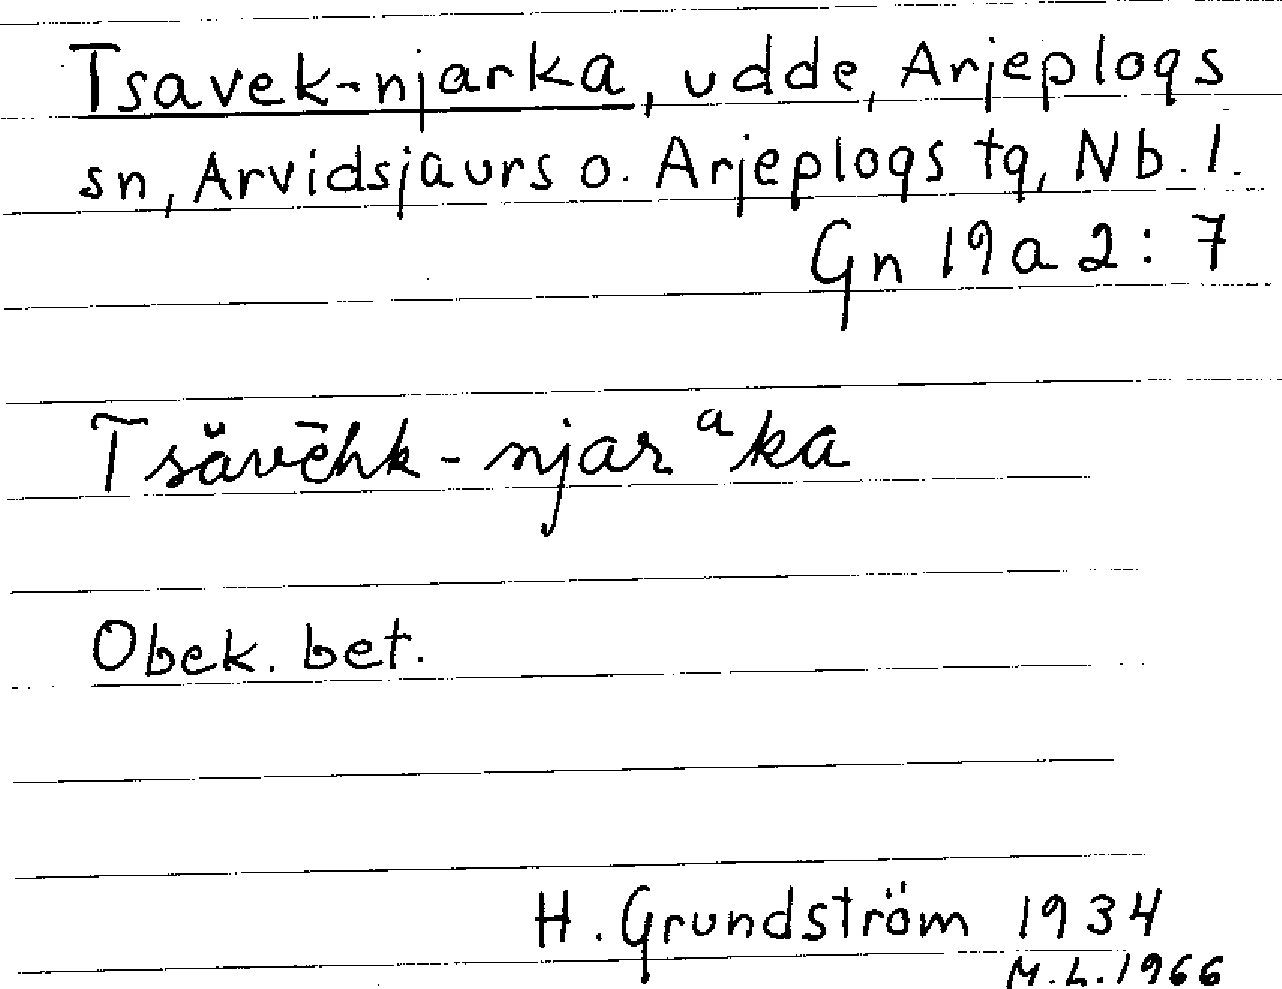 Tsavek-njarka, udde, Arjeplogs
sn, Arvidsjaurs o. Arjeplogs tg, Nb. l.
Gn 19 a 2 : 7
Tsăvēhk - njarᵃka
Obek. bet.
H. Grundström 1934
M.L. 1966